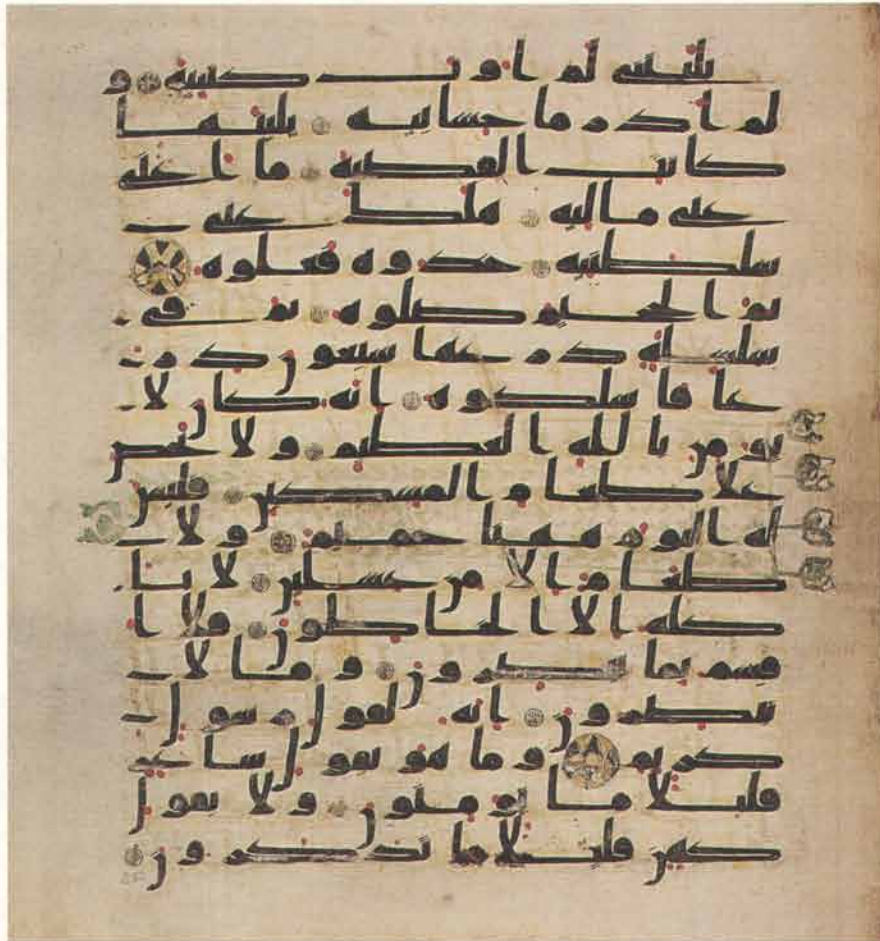 يليتني لم اوت كتبيه و
لم ادر ما حسابيه يليتها
كانت القضيه ما اغنى
عني ماليه هلك عني
سلطنيه خذوه فغلوه
ثم الجحيم صلوه ثم في
سلسلة ذرعها سبعون ذر
عا فاسلكوه انه كان لا
يومن بالله العظيم ولا يحض
علا طعام المسكين فليس
له اليوم ههنا حميم ولا
طعام الا من غسلين لا يا
كله الا الخاطون فلا ا
قسم بما تبصرون وما لا
تبصرون انه لقول رسول
كريم وما هو بقول شاعر
قليلا ما تومنون ولا بقول
كهن قليلا ما تذكرون